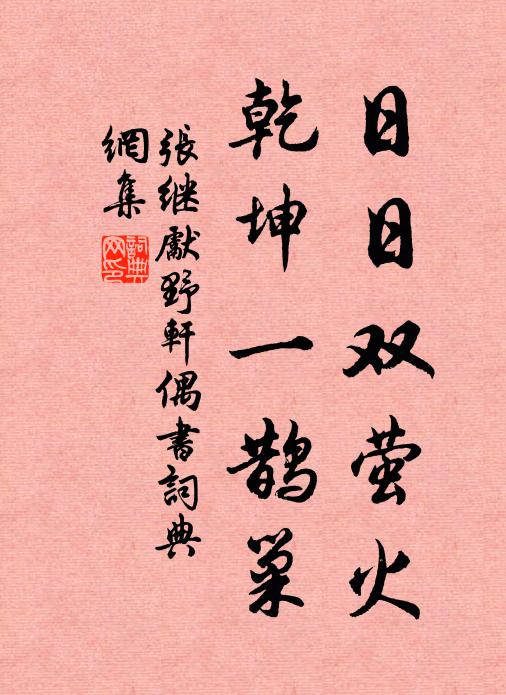 日日双萤火
乾坤一鹊巢
張继處野軒偶書詞典
網集
詞典
网印